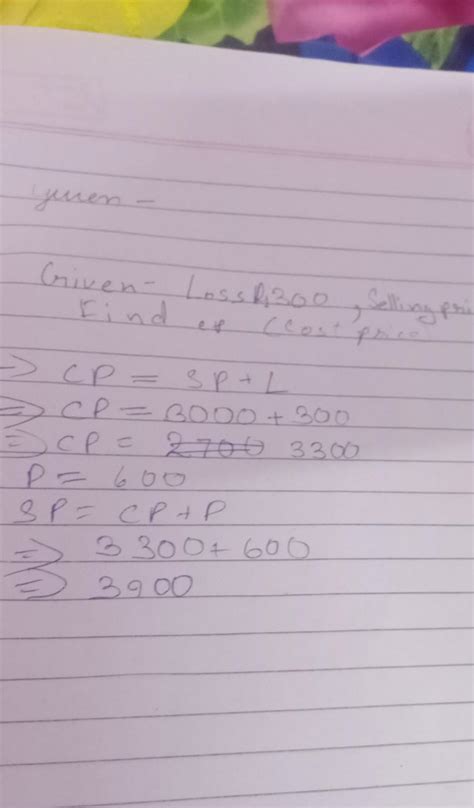 Given -
Given - Loss ₨ 300, Selling pri
Find cp (Cost price)
=> CP = SP + L
=> CP = 3000 + 300
=> CP = 2700 3300
P = 600
SP = CP + P
=> 3300 + 600
=> 3900